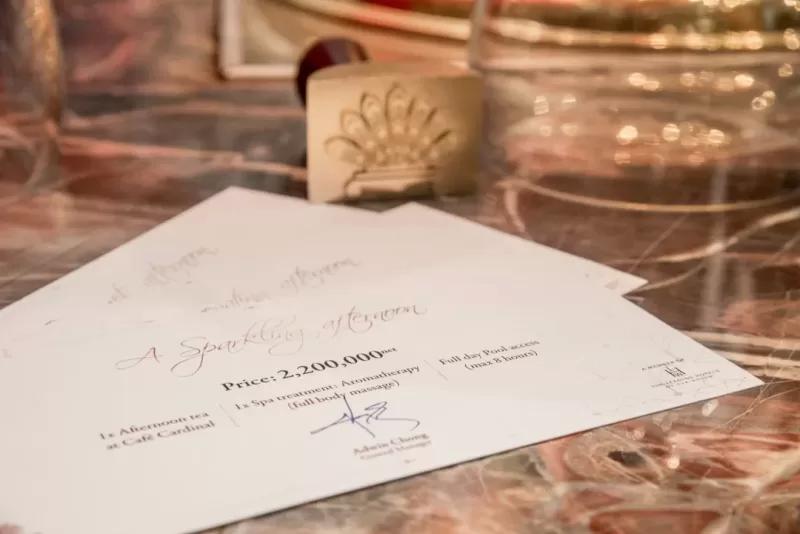 A Sparkling afternoon
Price: 2,200,000net
1x Afternoon tea
at Café Cardinal
1x Spa treatment: Aromatherapy
(full body massage)
Full day Pool access
(max 8 hours)
Adwin Chong
General Manager
A MEMBER OF
afternoon
afternoon